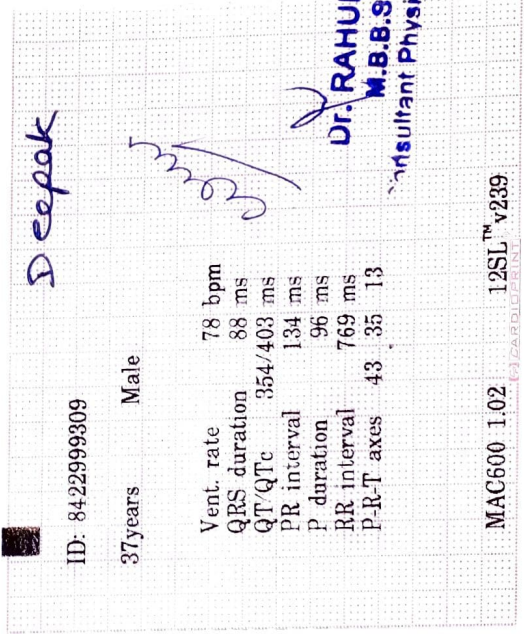 Deepak
ID: 84222999309
37years Male
Vent. rate 78 bpm
QRS duration 88 ms
QT/QTc 354/403 ms
PR interval 134 ms
P duration 96 ms
RR interval 769 ms
P-R-T axes 43 35 13
Dr. RAHU
M.B.B.S
nsultant Physi
MAC600 1.02 12SL™ v239
CARDIOPRINT